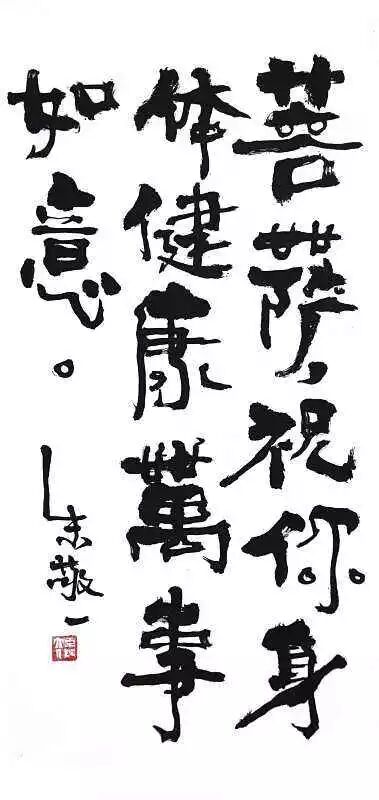 菩萨，祝你身
体健康萬事
如意。
朱敬一